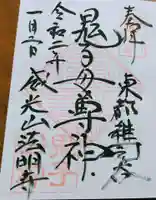 奉拝
東都雑司ヶ谷
鬼子母尊神
威光山法明寺
令和二年
一月二日